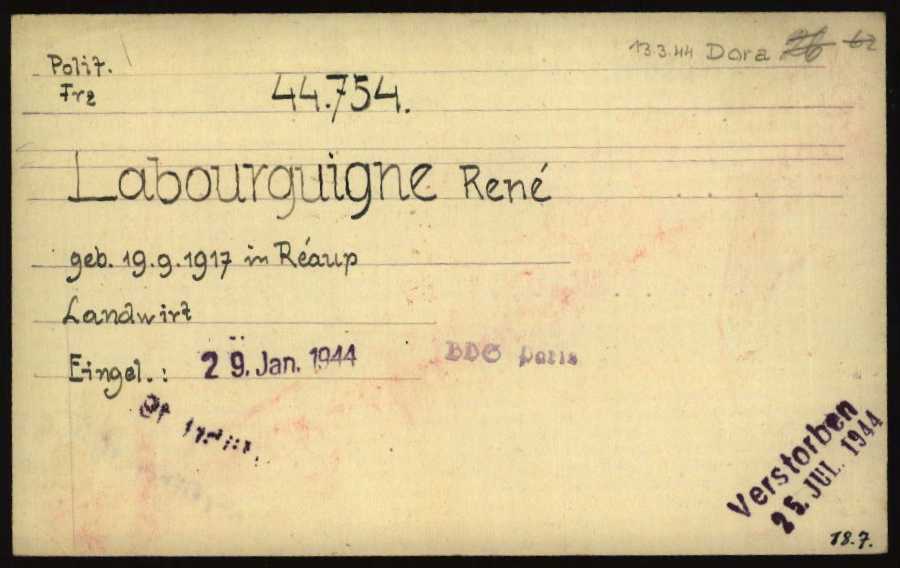 13.3.44 Dora 26 62
Polit.
Frz
44.754.
Labourguigne René
geb. 19.9.1917 in Réaup
Landwirt
Eingel.: 29. Jan. 1944 BDS Paris
Verstorben
25. JUL. 1944
18.7.